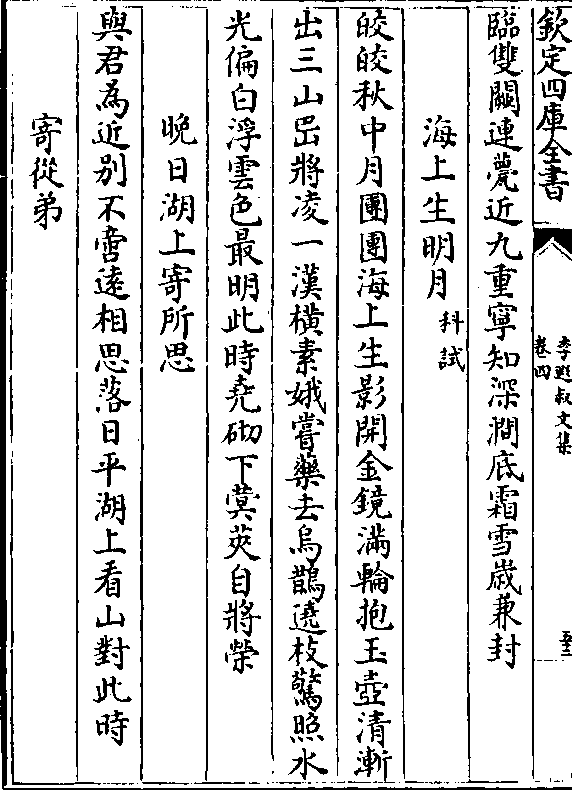 欽定四庫全書
李遐叔文集
卷四
臨雙闕連甍近九重寧知深澗底霜雪歲兼封
海上生明月 科試
皎皎秋中月團團海上生影開金鏡滿輪抱玉壺清漸
出三山岊將凌一漢橫素娥嘗藥去烏鵲遶枝驚照水
光偏白浮雲色最明此時堯砌下蓂莢自將榮
晚日湖上寄所思
與君為近別不啻逺相思落日平湖上看山對此時
寄從弟